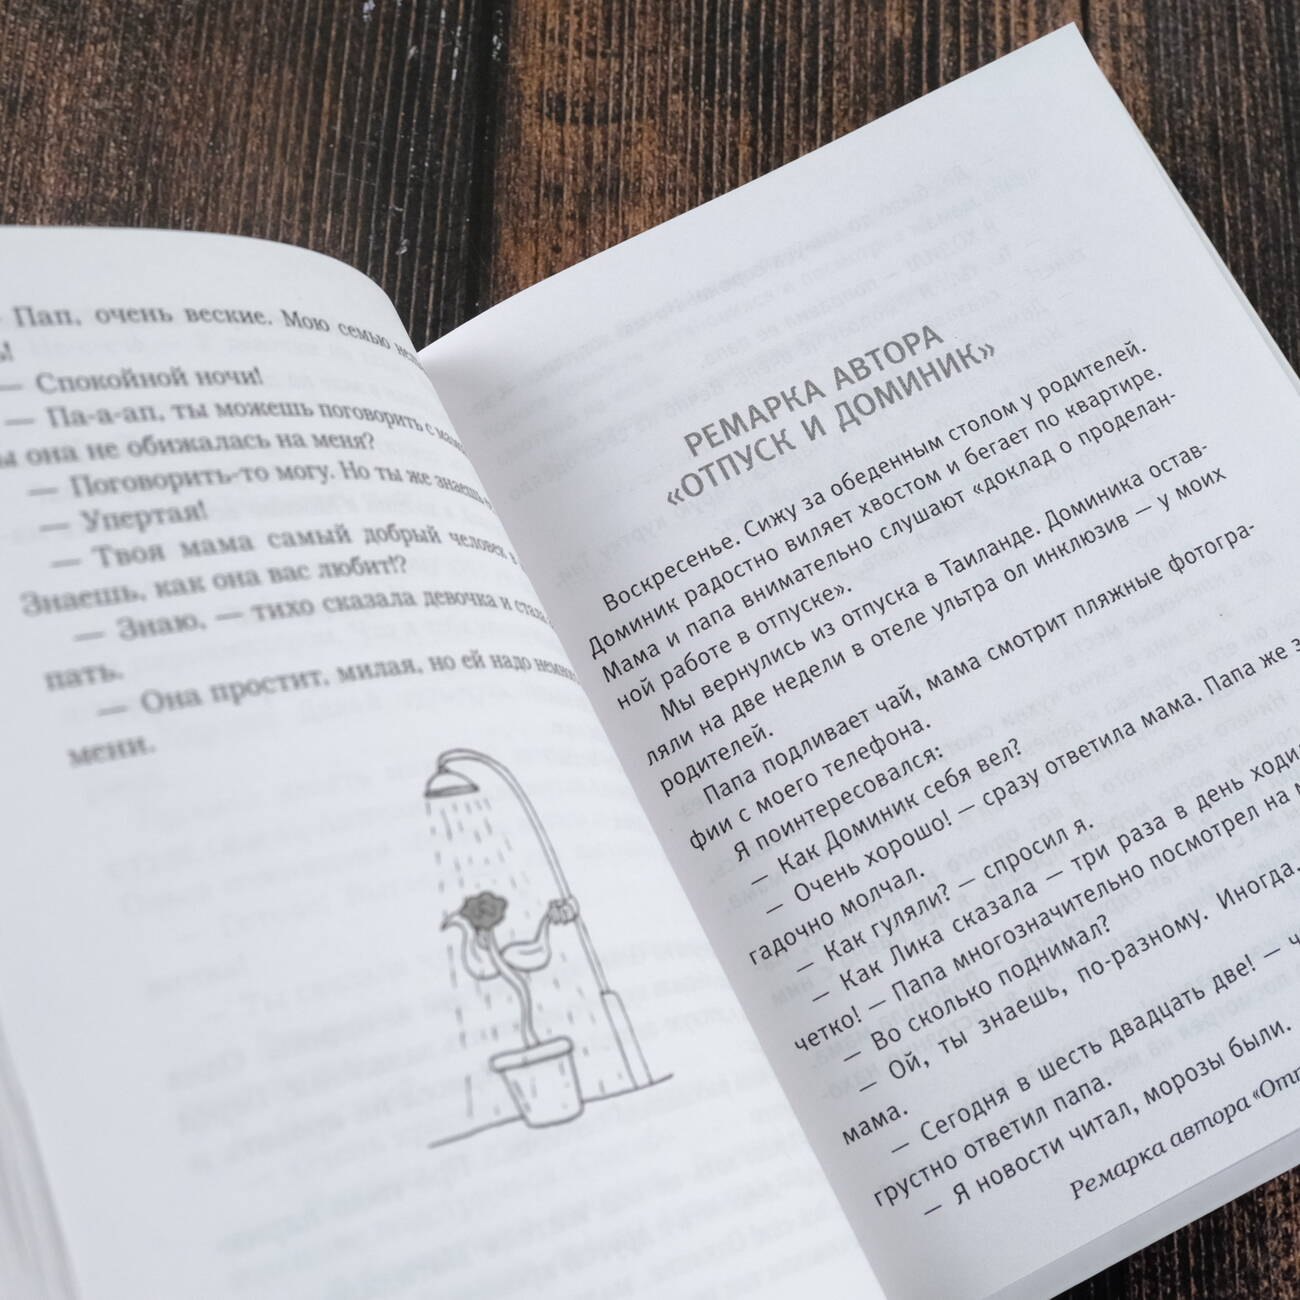 Пап, очень веские. Мою семью
— Спокойной ночи!
— Па-а-ап, ты можешь поговорить с
она не обижалась на меня?
— Поговорить-то могу. Но ты же знаешь
— Упертая!
— Твоя мама самый добрый человек в
Знаешь, как она вас любит!?
— Знаю, — тихо сказала девочка и
пать.
— Она простит, милая, но ей надо
мени.
РЕМАРКА АВТОРА
«ОТПУСК И ДОМИНИК»
Воскресенье. Сижу за обеденным столом у родителей.
Доминик радостно виляет хвостом и бегает по квартире.
Мама и папа внимательно слушают «доклад о проделан-
ной работе в отпуске».
Мы вернулись из отпуска в Таиланде. Доминика остав-
ляли на две недели в отеле ультра ол инклюзив — у моих
родителей.
Папа подливает чай, мама смотрит пляжные фотогра-
фии с моего телефона.
Я поинтересовался:
— Как Доминик себя вел?
— Очень хорошо! — сразу ответила мама. Папа же
гадочно молчал.
— Как гуляли? — спросил я.
— Как Лика сказала — три раза в день
четко! — Папа многозначительно посмотрел на
— Во сколько поднимал?
— Ой, ты знаешь, по-разному. Иногда.
мама.
— Сегодня в шесть двадцать две! —
грустно ответил папа.
— Я новости читал, морозы были.
Ремарка автора